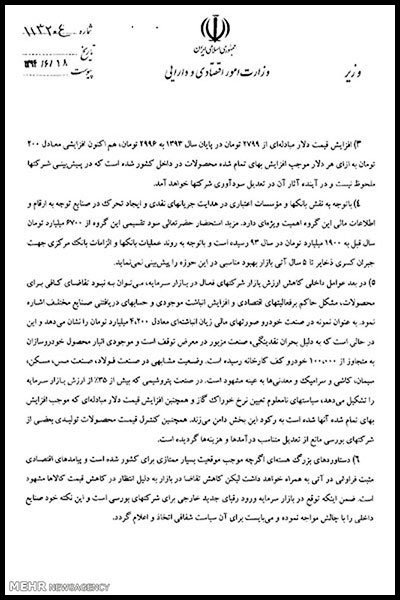 شماره ۱۱۳۲۰۴
تاریخ ۱۳۹۴/۶/۱۸
پیوست
جمهوری اسلامی ایران
وزارت امور اقتصادی و دارایی
وزیر
۳) افزایش قیمت دلار مبادله‌ای از ۲۷۹۹ تومان در پایان سال ۱۳۹۳ به ۲۹۹۶ تومان، هم اکنون افزایشی معادل ۲۰۰
تومان به ازای هر دلار موجب افزایش بهای تمام شده محصولات در داخل کشور شده است که در پیش‌بینی شرکتها
ملحوظ نیست و در آینده آثار آن در تعدیل سودآوری شرکتها خواهد آمد.
۴) باتوجه به نقش بانکها و مؤسسات اعتباری در هدایت جریانهای نقدی و ایجاد تحرک در صنایع توجه به ارقام و
اطلاعات مالی این گروه اهمیت ویژه‌ای دارد. مزید استحضار حضرتعالی سود تقسیمی این گروه از ۶۷۰۰ میلیارد تومان
سال قبل به ۱۹۰۰ میلیارد تومان در سال ۹۳ رسیده است و باتوجه به روند عملیات بانکها و الزامات بانک مرکزی جهت
جبران کسری ذخایر تا ۵ سال آتی بازار بهبود مناسبی در این حوزه را پیش‌بینی نمی‌نماید.
۵) در بعد عوامل داخلی کاهش ارزش بازار شرکتهای فعال در بازار سرمایه، می‌توان به نبود تقاضای کافی برای
محصولات، مشکل حاکم برفعالیتهای اقتصادی و افزایش انباشت موجودی و حسابهای دریافتنی صنایع مختلف اشاره
نمود. به عنوان نمونه در صنعت خودرو صورتهای مالی زیان انباشته‌ای معادل ۴٫۲۰۰ میلیارد تومان را نشان می‌دهد و این
در حالی است که به دلیل بحران نقدینگی، صنعت مزبور در معرض توقف است و موجودی انبار محصول خودروسازان
به متجاوز از ۱۰۰٫۰۰۰ خودرو کف کارخانه رسیده است. وضعیت مشابهی در صنعت فولاد، صنعت مس، مسکن،
سیمان، کاشی و سرامیک و معدنی‌ها به عینه مشهود است. در صنعت پتروشیمی که بیش از ۳۵٪ از ارزش بازار سرمایه
را تشکیل می‌دهد، سیاستهای نامعلوم تعیین نرخ خوراک گاز و همچنین افزایش قیمت دلار مبادله‌ای که موجب افزایش
بهای تمام شده آنها شده است به رکود این بخش دامن می‌زند. همچنین کنترل قیمت محصولات تولیدی بعضی از
شرکتهای بورسی مانع از تعدیل متناسب درآمدها و هزینه‌ها گردیده است.
۶) دستاوردهای بزرگ هسته‌ای اگرچه موجب موقعیت بسیار ممتازی برای کشور شده است و پیامدهای اقتصادی
مثبت فراوانی در آتی به همراه خواهد داشت لیکن کاهش تقاضا در بازار به دلیل انتظار در کاهش قیمت کالاها مشهود
است. ضمن اینکه توقع در بازار سرمایه ورود رقبای جدید خارجی برای شرکتهای بورسی است و این نکته خود صنایع
داخلی را با چالش مواجه نموده و می‌بایست برای آن سیاست شفافی اتخاذ و اعلام گردد.
MEHR NEWSAGENCY